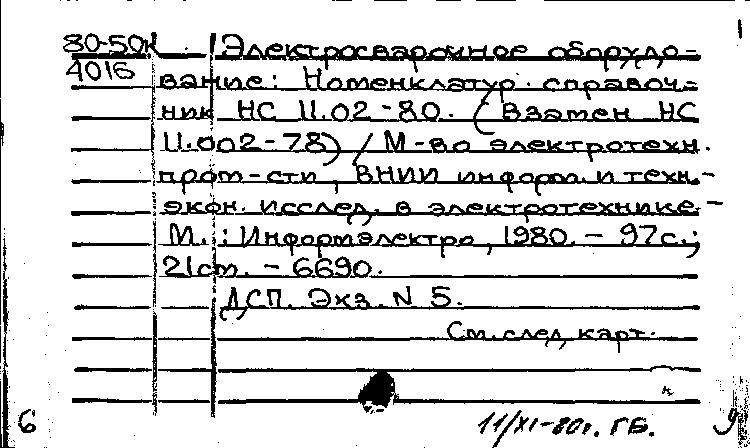 1
80-50к Электросварочное оборудо-
4016 вание: Номенклатур. справоч-
ник НС 11.02-80. (Взамен НС
11.002-78) / М-во электротехн.
пром-сти, ВНИИ информ. и техн.-
экон. исслед. в электротехнике. -
М.: Информэлектро, 1980. - 97с.;
21см. - 6690.
ДСП. Экз. N 5.
См. след. карт.
6 11/XI-80г. ГБ. 9